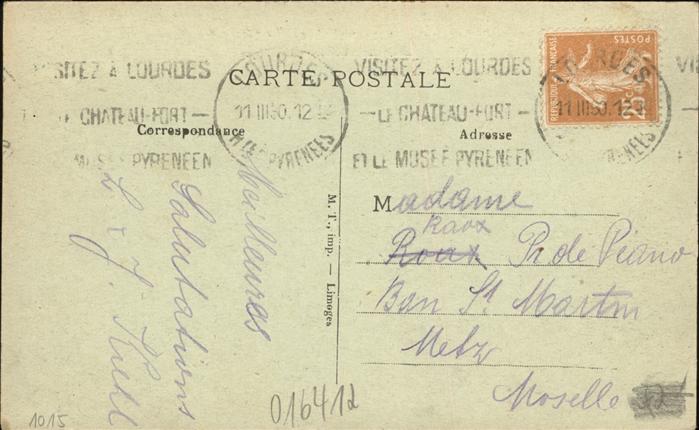 VISITEZ À LOURDES
LE CHATEAU-FORT
MUSÉE PYRENEEN
LOURDES
11 III30.12
HTES PYRENEES
VISITEZ À LOURDES
LE CHATEAU-FORT
ET LE MUSÉE PYRENEEN
LOURDES
11 III30.12
PYRENEES
POSTES
REPUBLIQUE FRANÇAISE
CARTE POSTALE
Correspondance
Adresse
Meilleures
Salutations
L & J. Kuhl
M. T., imp. — Limoges
Madame
Raox
Roax Pr de Piano
Ban St Martin
Metz
Moselle
1015
016412